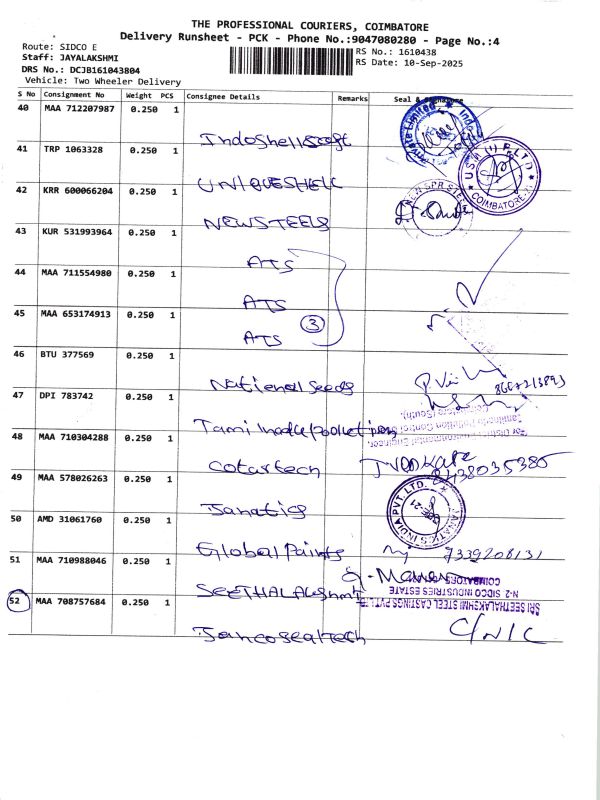 THE PROFESSIONAL COURIERS, COIMBATORE
Delivery Runsheet - PCK - Phone No.:9047080280 - Page No.:4
Route: SIDCO E
RS No.: 1610438
Staff: JAYALAKSHMI
RS Date: 10-Sep-2025
DRS No.: DCJB161043804
Vehicle: Two Wheeler Delivery
S No Consignment No Weight PCS Consignee Details Remarks Seal & Signature
40 MAA 712207987 0.250 1
41 TRP 1063328 0.250 1
UNIQUESHELL
42 KRR 600066204 0.250 1
NEWSTEELS
43 KUR 531993964 0.250 1
ATS
44 MAA 711554980 0.250 1
ATS
45 MAA 653174913 0.250 1
ATS 3
46 BTU 377569 0.250 1
National Seeds
47 DPI 783742 0.250 1
48 MAA 710304288 0.250 1
Cotartech
8438035385
49 MAA 578026263 0.250 1
Janatics
JANATICS INDIA PVT. LTD.
50 AMD 31061760 0.250 1
Global Paints
7339208131
51 MAA 710988046 0.250 1
SEETHALAKSHMI
COIMBATORE
N-2 SIDCO INDUSTRIES ESTATE
SRI SEETHALAKSHMI STEEL CASTINGS PVT LTD
52 MAA 708757684 0.250 1
Jancosealtech
C/NIC
Private Limited
U S R (I) P LTD
COIMBATORE
NEW SPR STEEL